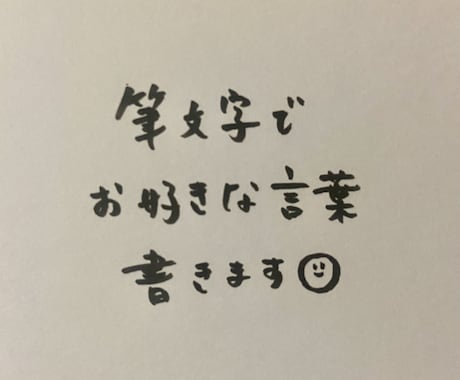 筆文字で
お好きな言葉
書きます☺